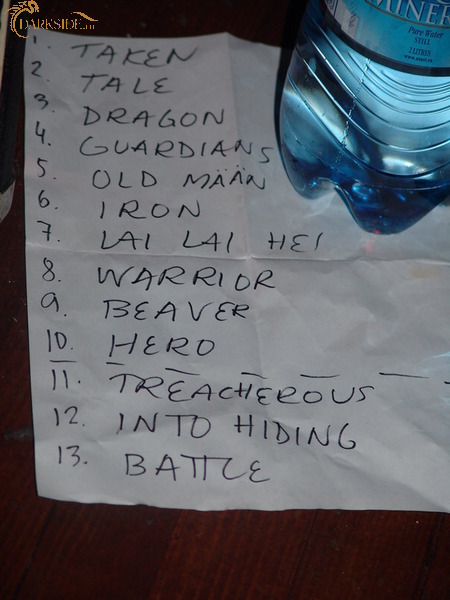 DARKSIDE.ru
1. TAKEN
2. TALE
3. DRAGON
4. GUARDIANS
5. OLD MÄÄN
6. IRON
7. LAI LAI HEI
8. WARRIOR
9. BEAVER
10. HERO
11. TREACHEROUS
12. INTO HIDING
13. BATTLE
MINER
Pure Water
STILL
2 LITRES